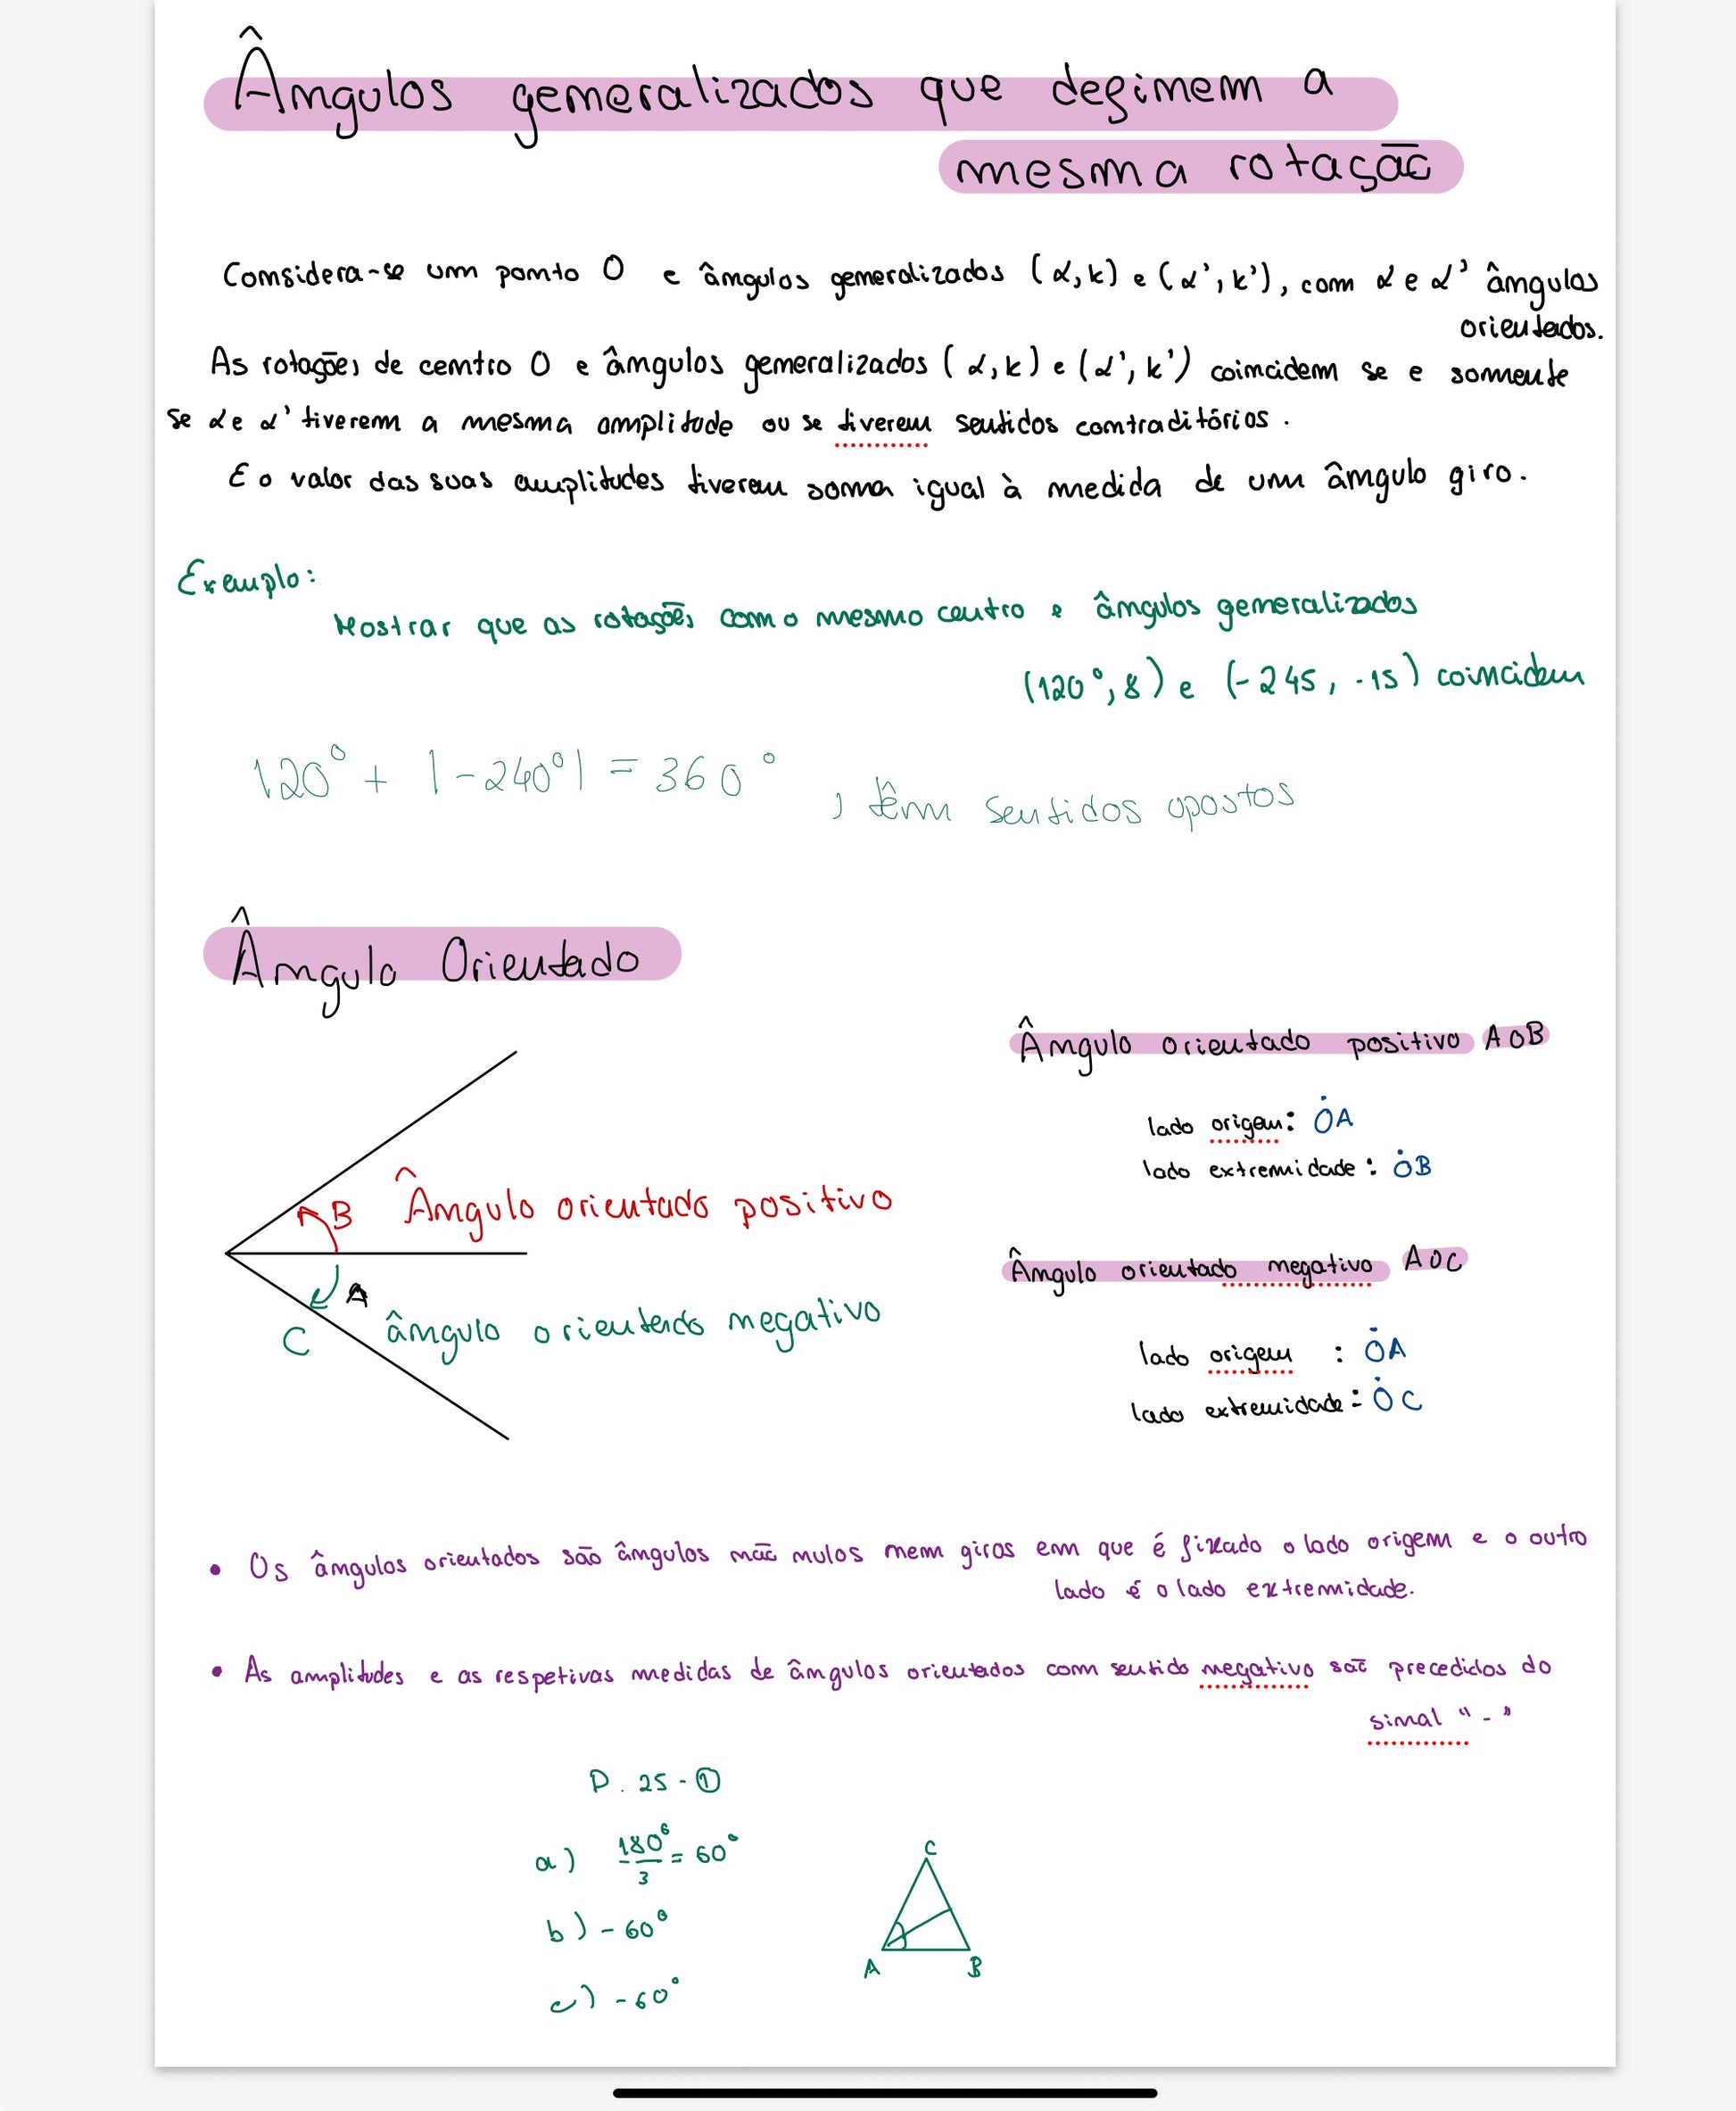 Ângulos generalizados que definem a
mesma rotação
Considera-se um ponto O e ângulos generalizados (α, k) e (α', k'), com α e α' ângulos
orientados.
As rotações de centro O e ângulos generalizados (α, k) e (α', k') coincidem se e somente
se α e α' tiverem a mesma amplitude ou se tiverem sentidos contraditórios.
E o valor das suas amplitudes tiverem soma igual à medida de um ângulo giro.
Exemplo:
Mostrar que as rotações com o mesmo centro e ângulos generalizados
(120°, 8) e (-245, -15) coincidem
120° + |-240°| = 360°, têm sentidos opostos
Ângulo Orientado
Ângulo orientado positivo AOB
lado origem: ȮA
lado extremidade: ȮB
B Ângulo orientado positivo
Ângulo orientado negativo AOC
A
C ângulo orientado negativo
lado origem : ȮA
lado extremidade: ȮC
• Os ângulos orientados são ângulos não nulos nem giros em que é fixado o lado origem e o outro
lado é o lado extremidade.
• As amplitudes e as respetivas medidas de ângulos orientados com sentido negativo são precedidos do
sinal "-"
P. 25 - ①
a) 180°/3 = 60°
b) -60°
c) -60°
C
A B